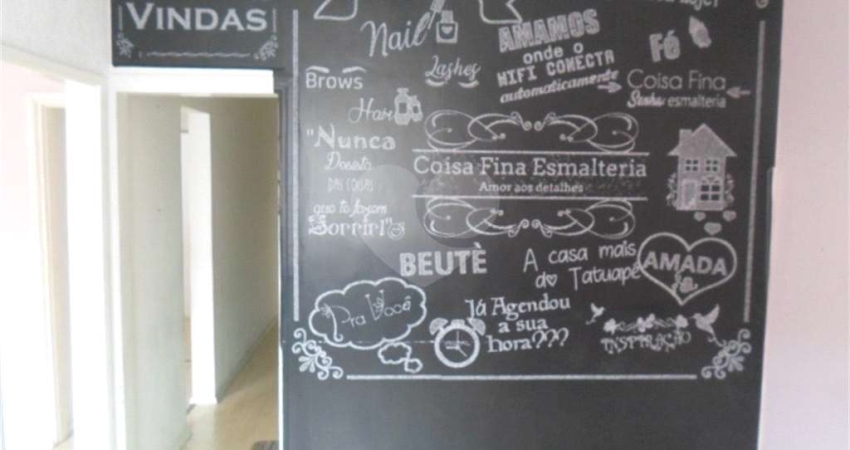 VINDAS
Nail
AMAMOS
onde o
WIFI CONECTA
automaticamente
FÓ
Brows
Lashes
Hair
Coisa Fina
Senha: esmalteria
"Nunca
Desista
DAS COISAS
que te fazem
Sorrir!"
Coisa Fina Esmalteria
Amor aos detalhes
BEUTÈ
A casa mais
do Tatuapé
AMADA
Pra Você
Já Agendou
a sua
hora???
INSPIRAÇÃO